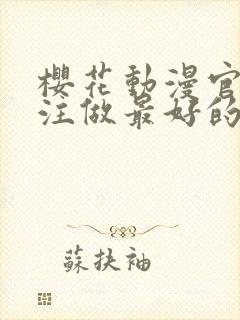 櫻花動漫官
注做最好的
蘇扶袖